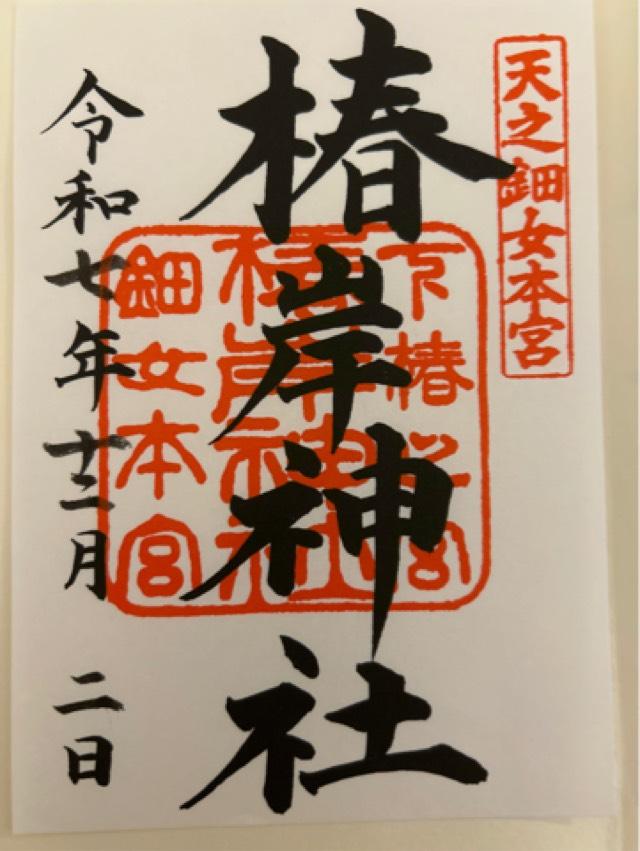 天之鈿女本宮
椿岸神社
下椿之宮
椿岸神社
鈿女本宮
令和七年十二月 二日